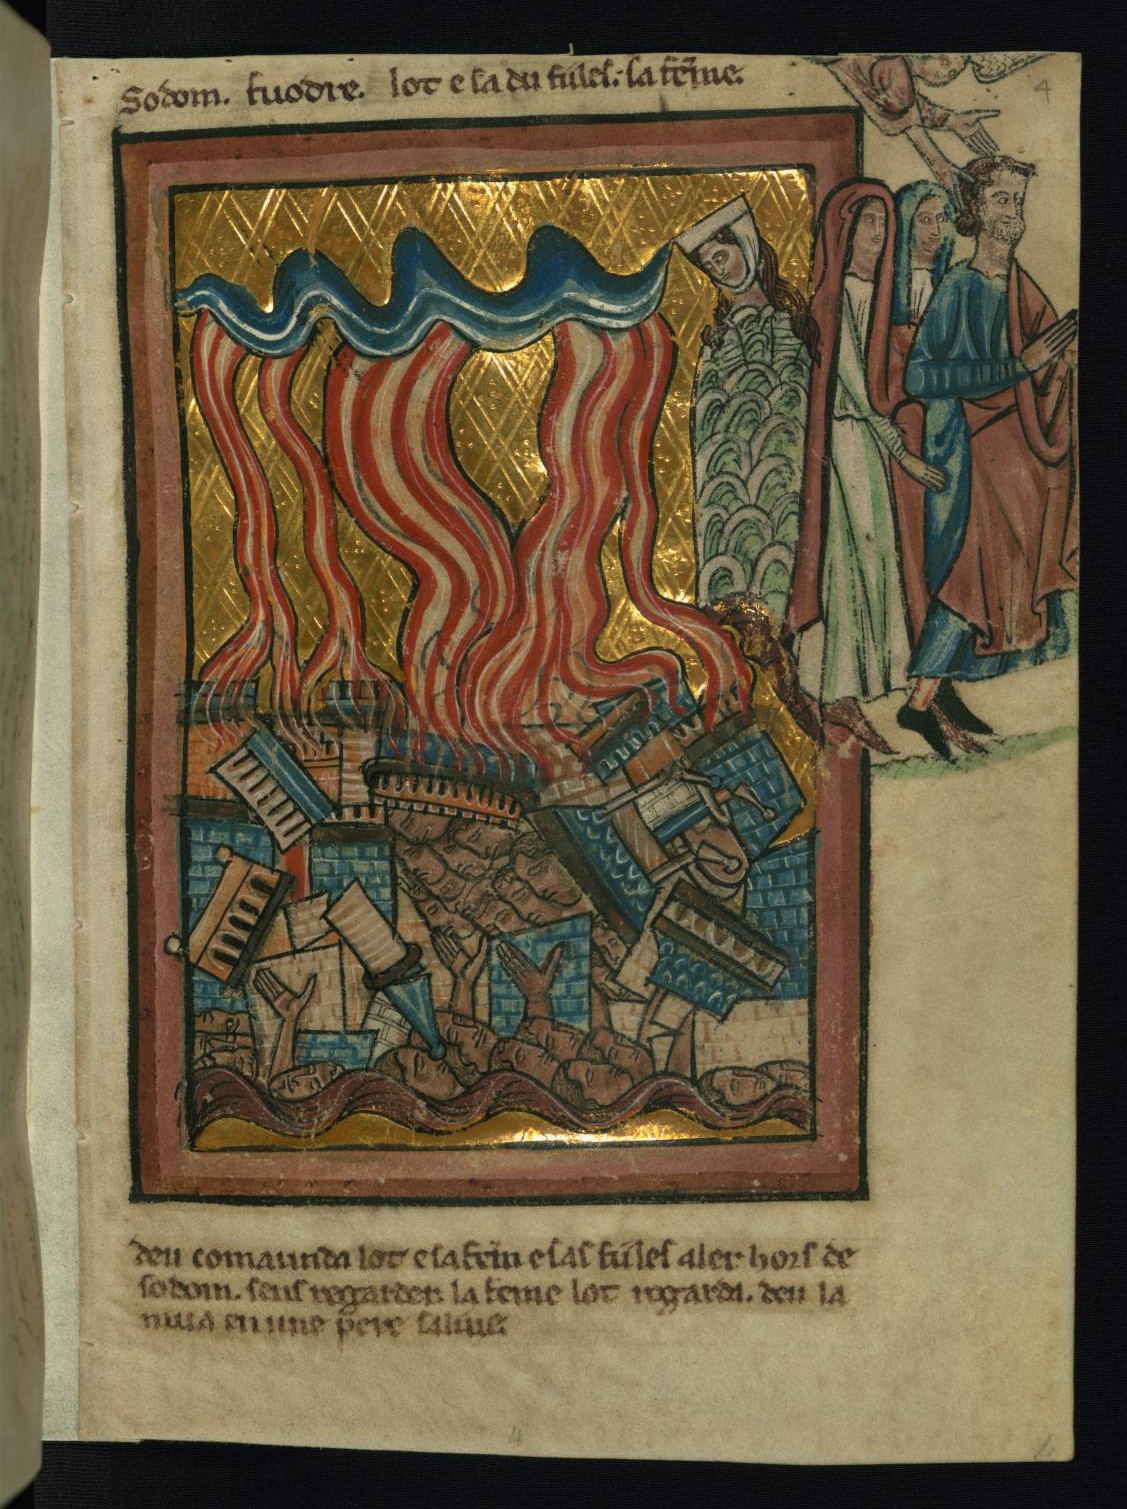 Sodom. fuodre. lot e sa du filles. sa feme.
4
deu comaunda lot e sa fem e sas filles aler hors de
sodom. sens regarder. la feme lot regarda. deu la
mua en une pere salive.
4